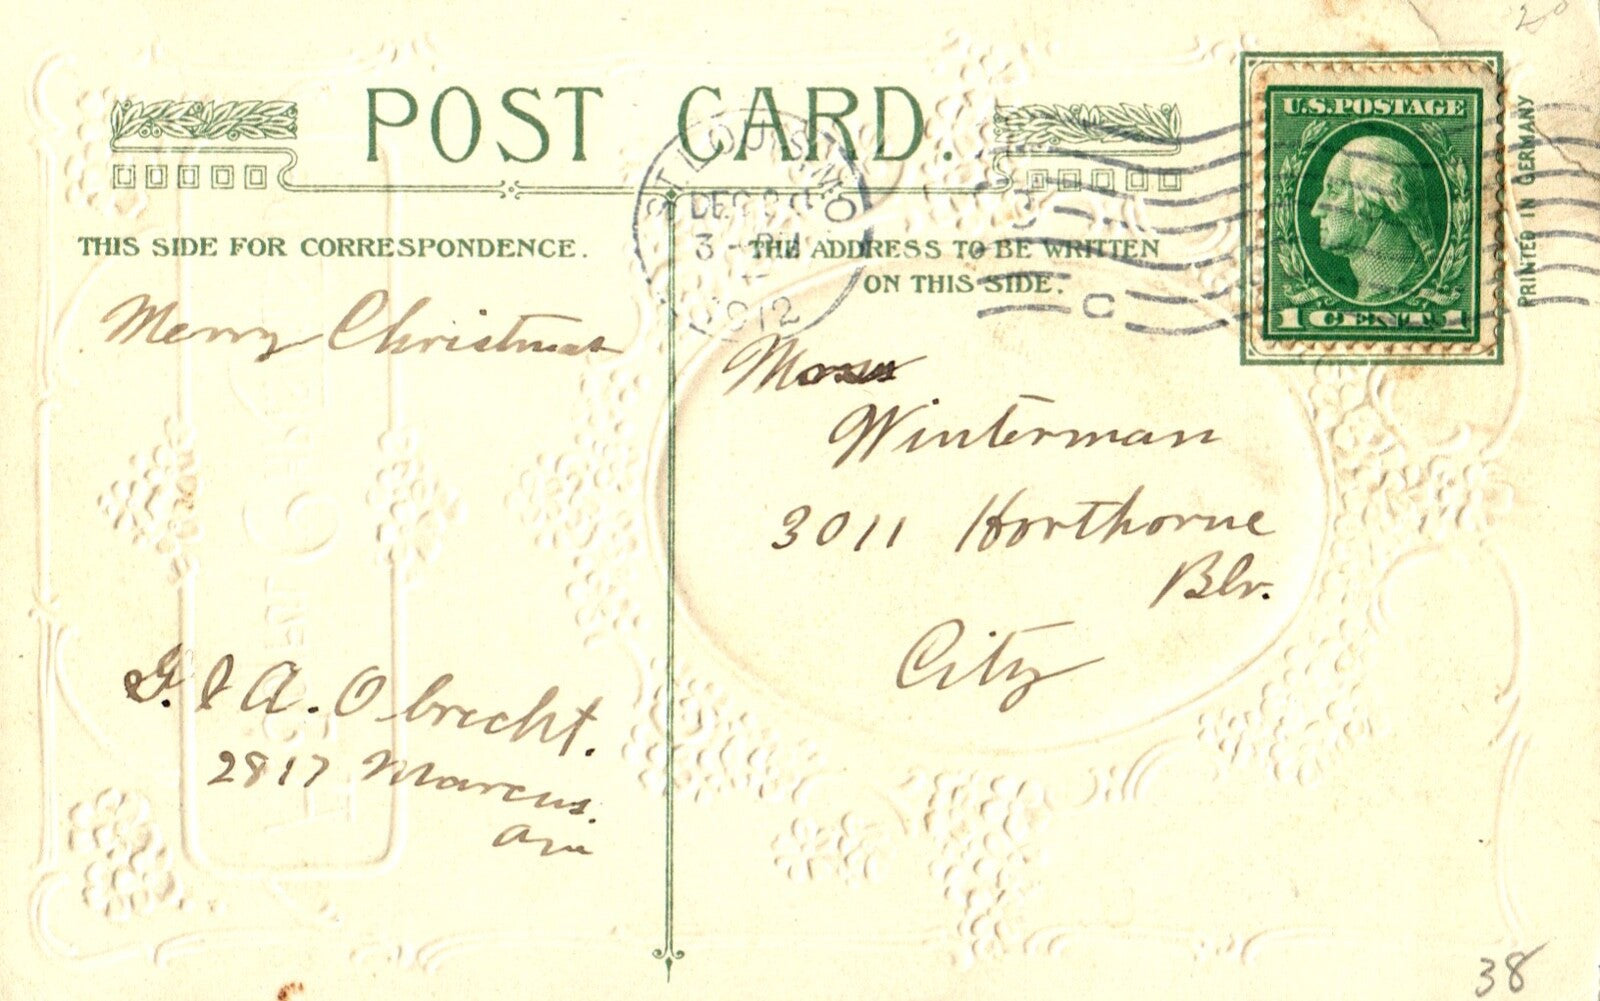 POST CARD.
THIS SIDE FOR CORRESPONDENCE.
THE ADDRESS TO BE WRITTEN
ON THIS SIDE.
ST LOUIS, MO
DEC
3-PM
1912
C
U.S.POSTAGE
1 CENT 1
PRINTED IN GERMANY
20
Merry Christmas
G. & A. Obrecht.
2817 Marcus.
Ave
Winterman
3011 Horthorne
Blv.
City
38